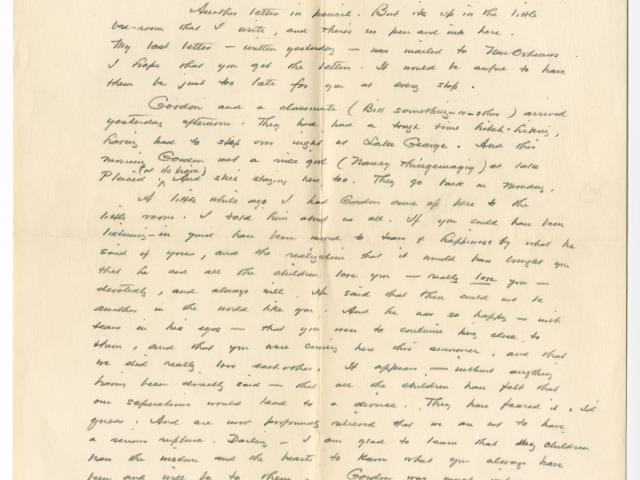 Another letter in pencil. But it's up in the little
box-room that I write, and there's no pen and ink here.
My last letter — written yesterday — was mailed to New Orleans.
I hope that you get the letter. It would be awful to have
them be just too late for you at every stop.
Gordon and a classmate (Bill something-or-other) arrived
yesterday afternoon. They had had a tough time hitch-hiking,
having had to stop over night at Lake George. And this
morning Gordon met a nice girl (Nancy Thingemajig) at Lake
Placid (at the train). And she's staying here too. They go back on Monday.
A little while ago I had Gordon come up here to the
little room. I told him about us all. If you could have been
listening-in you'd have been moved to tears of happiness by what he
said of you, and the realization that it would have brought you
that he and all the children love you — really love you —
devotedly, and always will. He said that there could not be
another in the world like you. And he was so happy — with
tears in his eyes — that you were to continue being close to
them, and that you were coming here this summer, and that
we did really love each other. It appears — without anything
having been directly said — that all the children have felt that
our separations would lead to a divorce. They have feared it, I'd
guess. And are now profoundly relieved that we are not to have
a serious rupture. Darling — I am glad to learn that my children
have the wisdom and the hearts to know what you always have
been and will be to them. Gordon was most